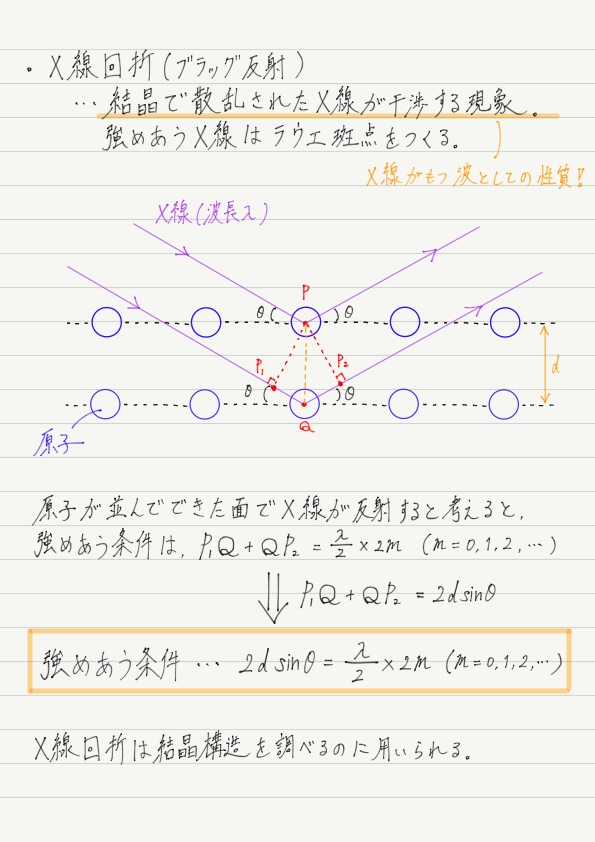 ・X線回折(ブラッグ反射)
… 結晶で散乱されたX線が干渉する現象。
強めあうX線はラウエ斑点をつくる。
X線がもつ波としての性質!
X線(波長λ)
P
θ θ
P₁ P₂
d
θ θ
Q
原子
原子が並んでできた面でX線が反射すると考えると,
強めあう条件は, P₁Q + QP₂ = λ/2 × 2m (m = 0, 1, 2, …)
P₁Q + QP₂ = 2d sinθ
強めあう条件 … 2d sinθ = λ/2 × 2m (m = 0, 1, 2, …)
X線回折は結晶構造を調べるのに用いられる。